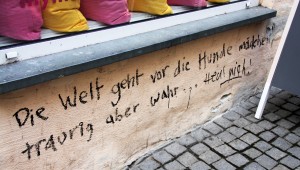 Die Welt geht vor die Hunde mädchen
traurig aber wahr...